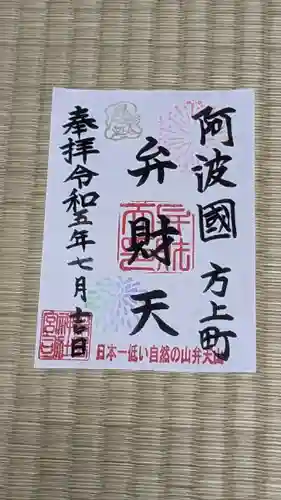 阿波國 方上町
弁財天
奉拝 令和五年七月十七日
日本一低い自然の山弁天山